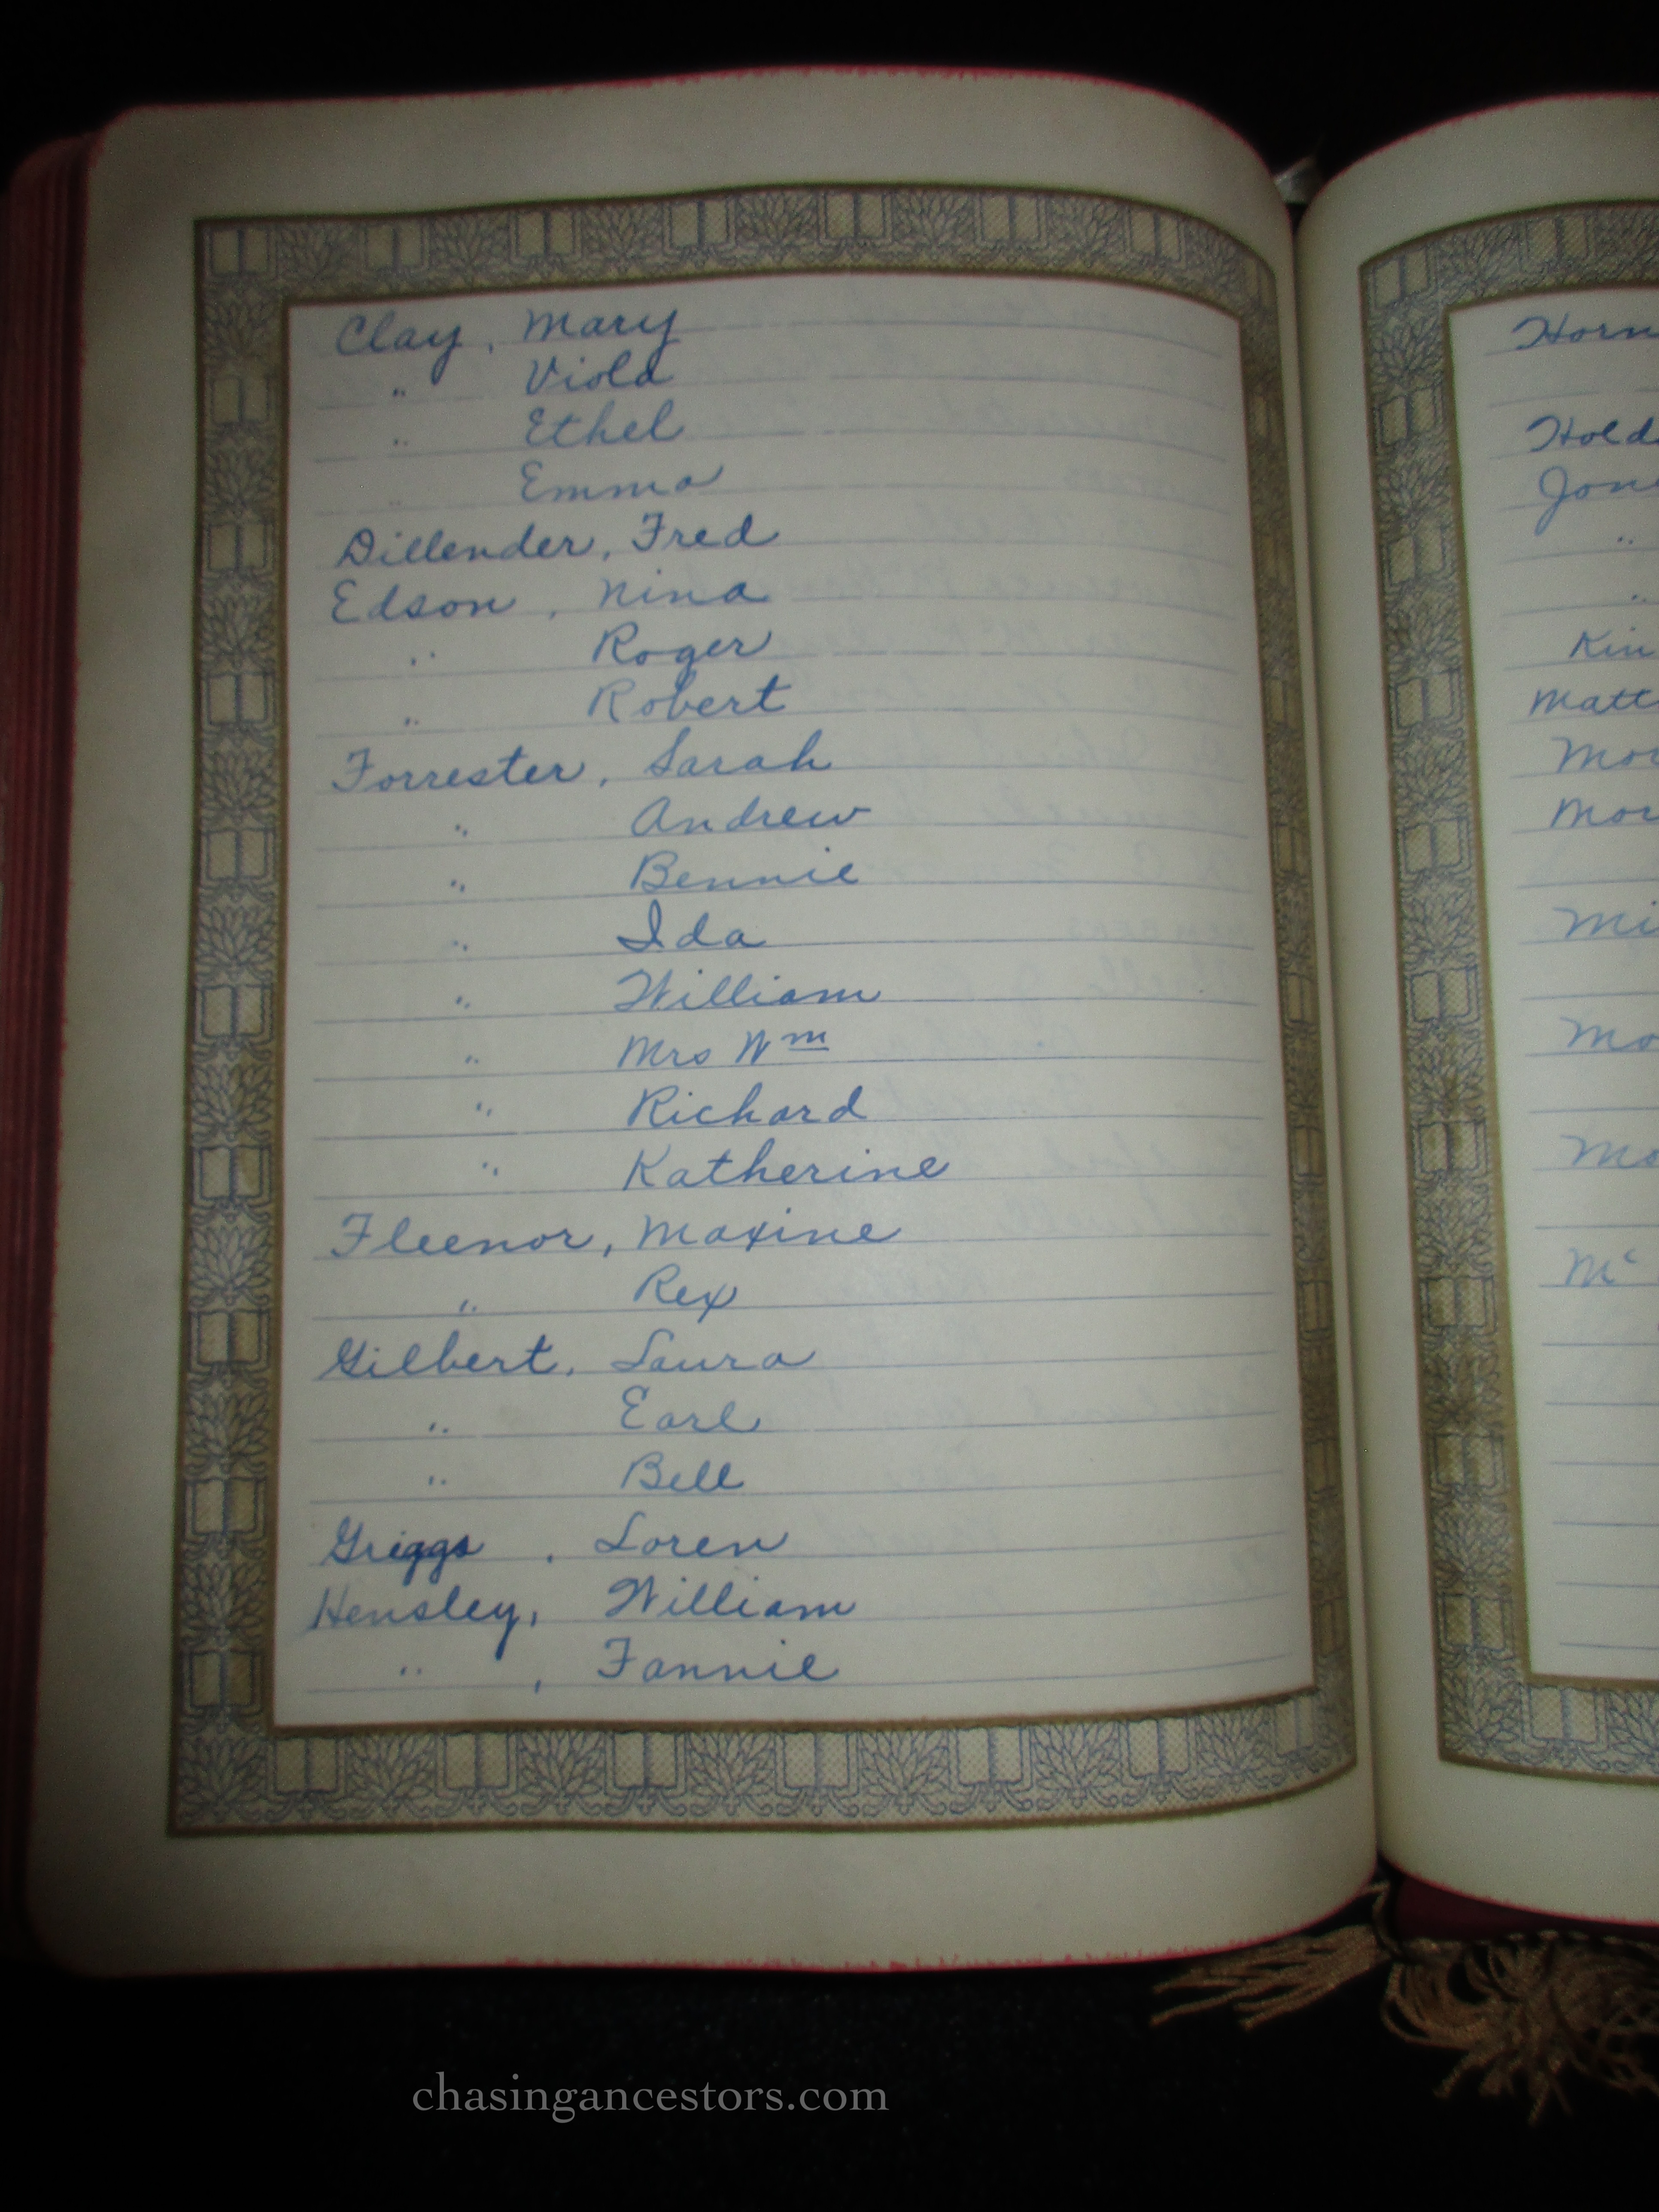 Clay, Mary
" Viola
" Ethel
" Emma
Dillender, Fred
Edson, Nina
" Roger
" Robert
Forrester, Sarah
" Andrew
" Bennie
" Ida
" William
" Mrs Wm
" Richard
" Katherine
Fleenor, Maxine
" Rex
Gilbert, Laura
" Earl
" Bell
Griggs, Loren
Hensley, William
" , Fannie
Horn
Hold
Jon
"
"
Kin
Matt
Mo
Mo
Mi
Mo
Mo
Mc
chasingancestors.com